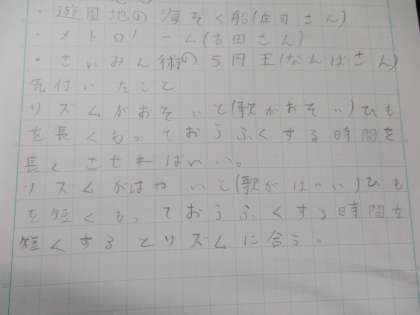 ・遊園地の海ぞく船(庄司さん)
・メトロノーム(吉田さん)
・さいみん術の5円玉(なんばさん)
気付いたこと
リズムがおそいと(歌がおそい)ひも
を長くもっておうふくする時間を
長くさせればいい。
リズムがはやいと(歌がはやい)ひも
を短くもっておうふくする時間を
短くするとリズムに合う。